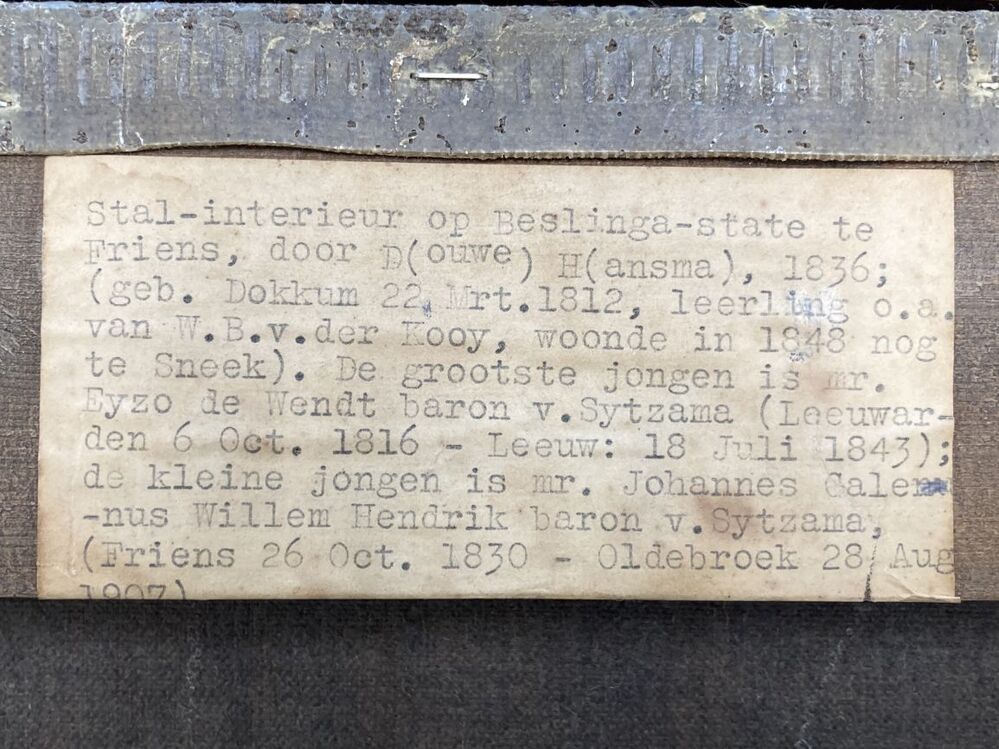 Stal-interieur op Beslinga-state te
Friens, door D(ouwe) H(ansma), 1836;
(geb. Dokkum 22 Mrt.1812, leerling o.a.
van W.B.v.der Kooy, woonde in 1848 nog
te Sneek). De grootste jongen is mr.
Eyzo de Wendt baron v.Sytzama (Leeuwar-
den 6 Oct. 1816 - Leeuw: 18 Juli 1843);
de kleine jongen is mr. Johannes Gale
-nus Willem Hendrik baron v.Sytzama,
(Friens 26 Oct. 1830 - Oldebroek 28 Aug
1907)